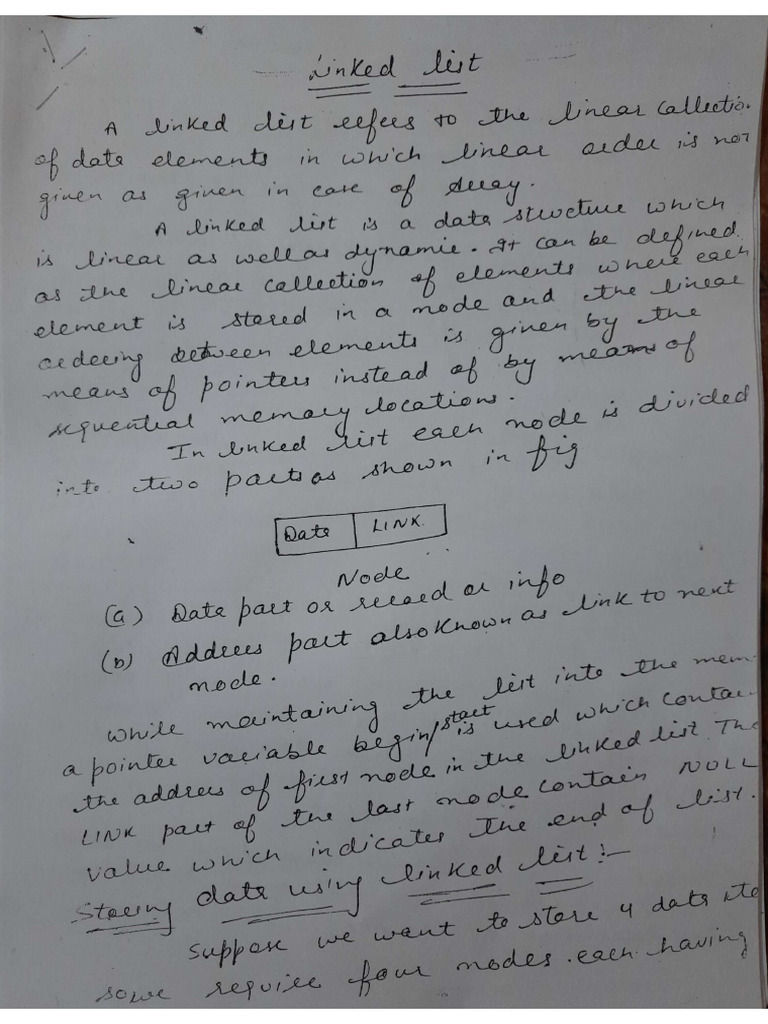 Linked list
A linked list refers to the linear collectio
of data elements in which linear order is not
given as given in case of Array.
A linked list is a data structure which
is linear as well as dynamic. It can be defined
as the linear collection of elements where each
element is stored in a node and the linear
ordering between elements is given by the
means of pointers instead of by means of
sequential memory locations.
In linked list each node is divided
into two parts as shown in fig
Data | LINK
Node
(a) Data part or record or info
(b) Address part also known as link to next
node.
while maintaining the list into the mem
a pointer variable begin/start is used which contai
the address of first node in the linked list The
LINK part of the last node contain NULL
value which indicates the end of list.
Storing data using linked list:-
Suppose we want to store 4 data ite
so we require four nodes each having